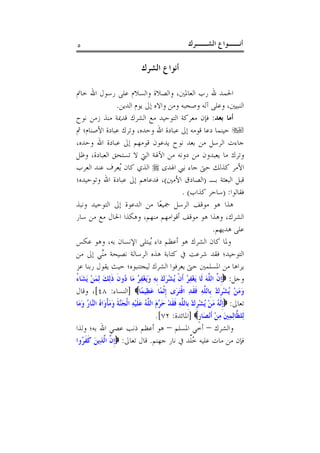 أنــــواع الشــــرك ٥
أنواع الشرك
الحمد لله رب العالمين، والصلاة والسلام على رسول الله خاتم
النبيين، وعلى آله وصحبه ومن والاه إلى يوم الدين.
أما بعد: فإن معركة التوحيد مع الشرك قديمة منذ زمن نوح
حينما دعا قومه إلى عبادة الله وحده، وترك عبادة الأصنام؛ ثم
جاءت الرسل من بعد نوح يدعون قومهم إلى عبادة الله وحده،
وترك ما يعبدون من دونه من الآلهة التي لا تستحق العبادة، وظل
الأمر كذلك حتى جاء نبي الهدى ﷺ الذي كان يُعرف عند العرب
قبل البعثة بـــ (الصادق الأمين)، فدعاهم إلى عبادة الله وتوحيده؛
فقالوا: (ساحر كذاب) .
هذا هو موقف الرسل جميعًا من الدعوة إلى التوحيد ونبذ
الشرك، وهذا هو موقف أقوامهم منهم، وهكذا الحال مع من سار
على هديهم.
ولما كان الشرك هو أعظم داء يُبتلى الإنسان به، وهو عكس
التوحيد؛ فقد شرعت في كتابة هذه الرسالة نصيحة منِّي إلى من
يراها من المسلمين حتى يعرفوا الشرك ليجتنبوه؛ حيث يقول ربنا عز
وجل: ﴿إِنَّ اللَّهَ لَا يَغْفِرُ أَنْ يُشْرَكَ بِهِ وَيَغْفِرُ مَا دُونَ ذَلِكَ لِمَنْ يَشَاءُ
وَمَنْ يُشْرِكْ بِاللَّهِ فَقَدِ افْتَرَى إِثْمًا عَظِيمًا﴾ [النساء: ٤٨]، وقال
تعالى: ﴿إِنَّهُ مَنْ يُشْرِكْ بِاللَّهِ فَقَدْ حَرَّمَ اللَّهُ عَلَيْهِ الْجَنَّةَ وَمَأْوَاهُ النَّارُ وَمَا
لِلظَّالِمِينَ مِنْ أَنْصَارٍ﴾ [المائدة: ٧٢].
والشرك – أخي المسلم – هو أعظم ذنب عصي الله به؛ ولذا
فإن من مات عليه خُلِّد في نار جهنم. قال تعالى: ﴿إِنَّ الَّذِينَ كَفَرُوا